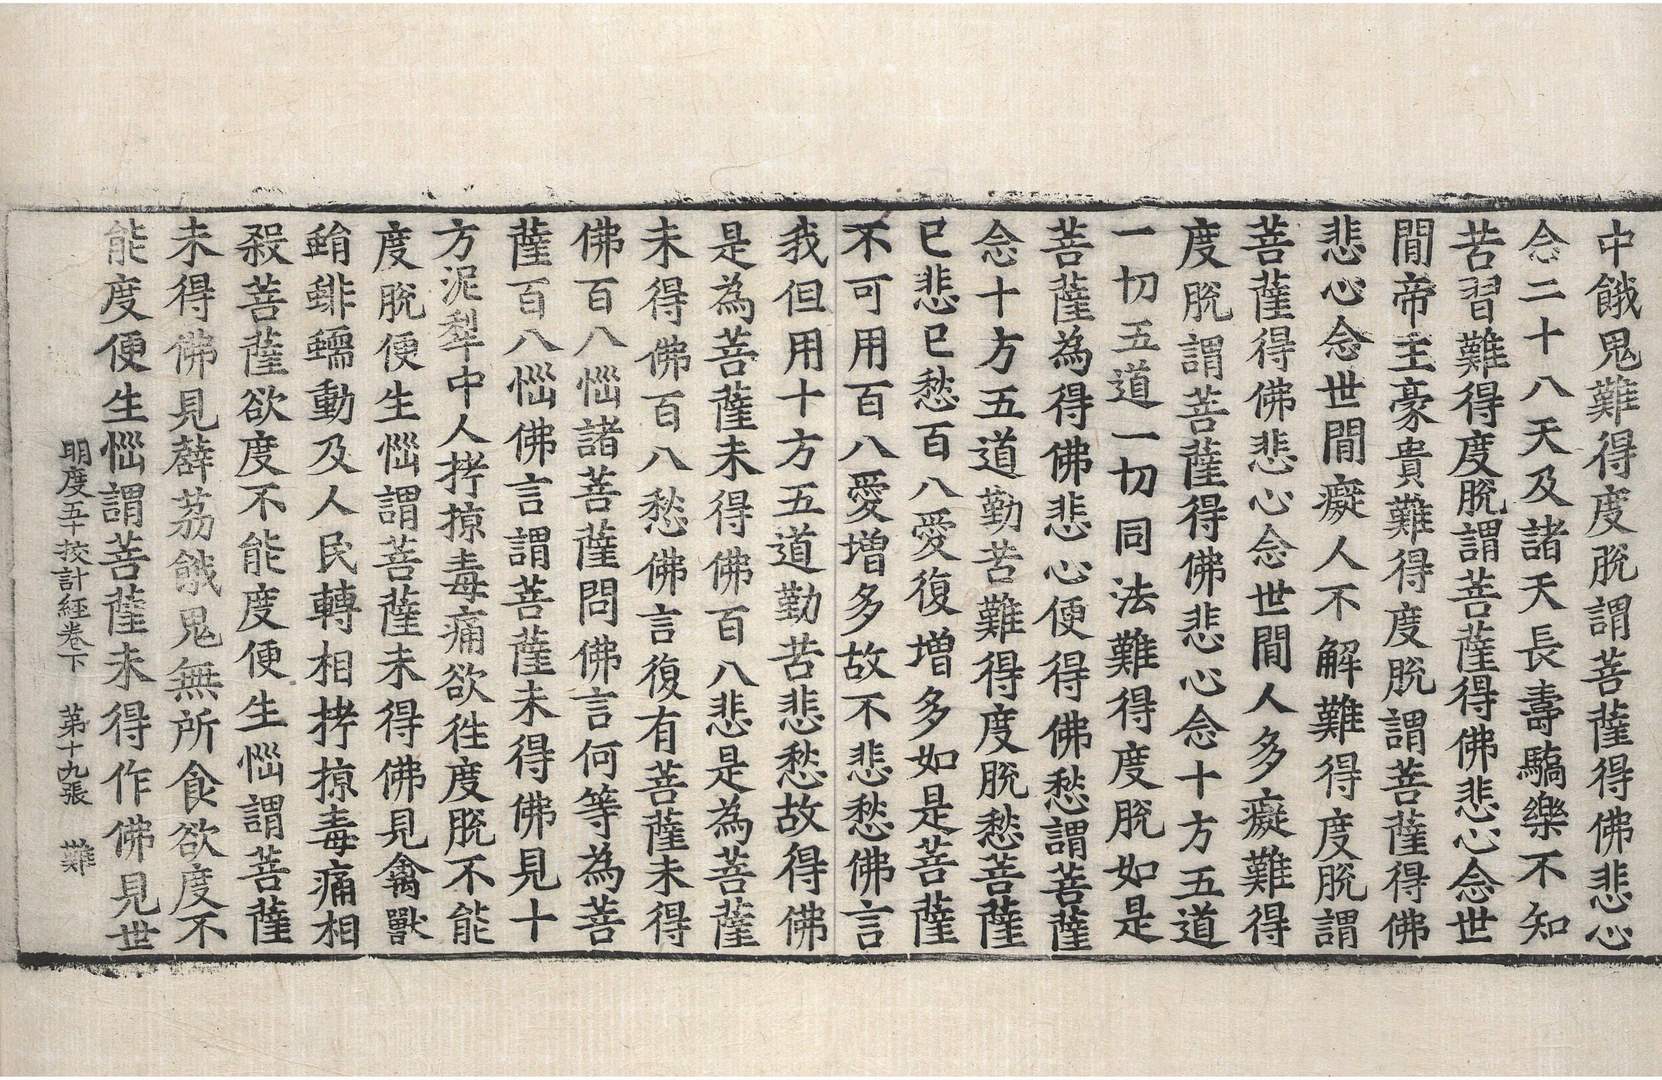 中餓鬼難得度脫謂菩薩得佛悲心
念二十八天及諸天長壽驕樂不知
苦習難得度脫謂菩薩得佛悲心念世
閒帝主豪貴難得度脫謂菩薩得佛
悲心念世閒癡人不解難得度脫謂
菩薩得佛悲心念世閒人多癡難得
度脫謂菩薩得佛悲心念十方五道
一切五道一切同法難得度脫如是
菩薩為得佛悲心便得佛愁謂菩薩
念十方五道勤苦難得度脫愁菩薩
已悲已愁百八愛復增多如是菩薩
不可用百八愛增多故不悲愁佛言
我但用十方五道勤苦悲愁故得佛
是為菩薩未得佛百八悲是為菩薩
未得佛百八愁佛言復有菩薩未得
佛百八惱諸菩薩問佛言何等為菩
薩百八惱佛言謂菩薩未得佛見十
方泥犁中人拷掠毒痛欲往度脫不能
度脫便生惱謂菩薩未得佛見禽獸
蜎蜚蠕動及人民轉相拷掠毒痛相
殺菩薩欲度不能度便生惱謂菩薩
未得佛見薜荔餓鬼無所食欲度不
能度便生惱謂菩薩未得作佛見世
明度五十挍計經卷下　第十九張　難